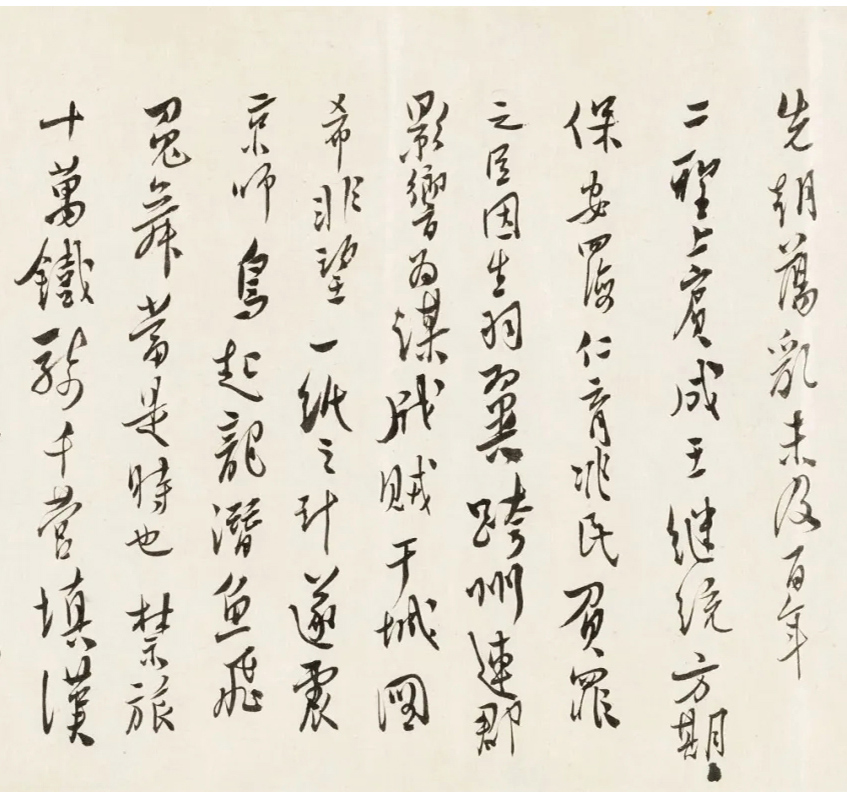 先朝蕩亂未及百年
二聖上賓成王繼統方期
保安四海仁育兆民負罪
之臣因生羽翼跨州連郡
影響為謀戕賊干城圖
希非望一紙之計遂震
京師鳥起龍潛魚飛
鬼舞當是時也禁旅
十萬鐵騎千營填漢